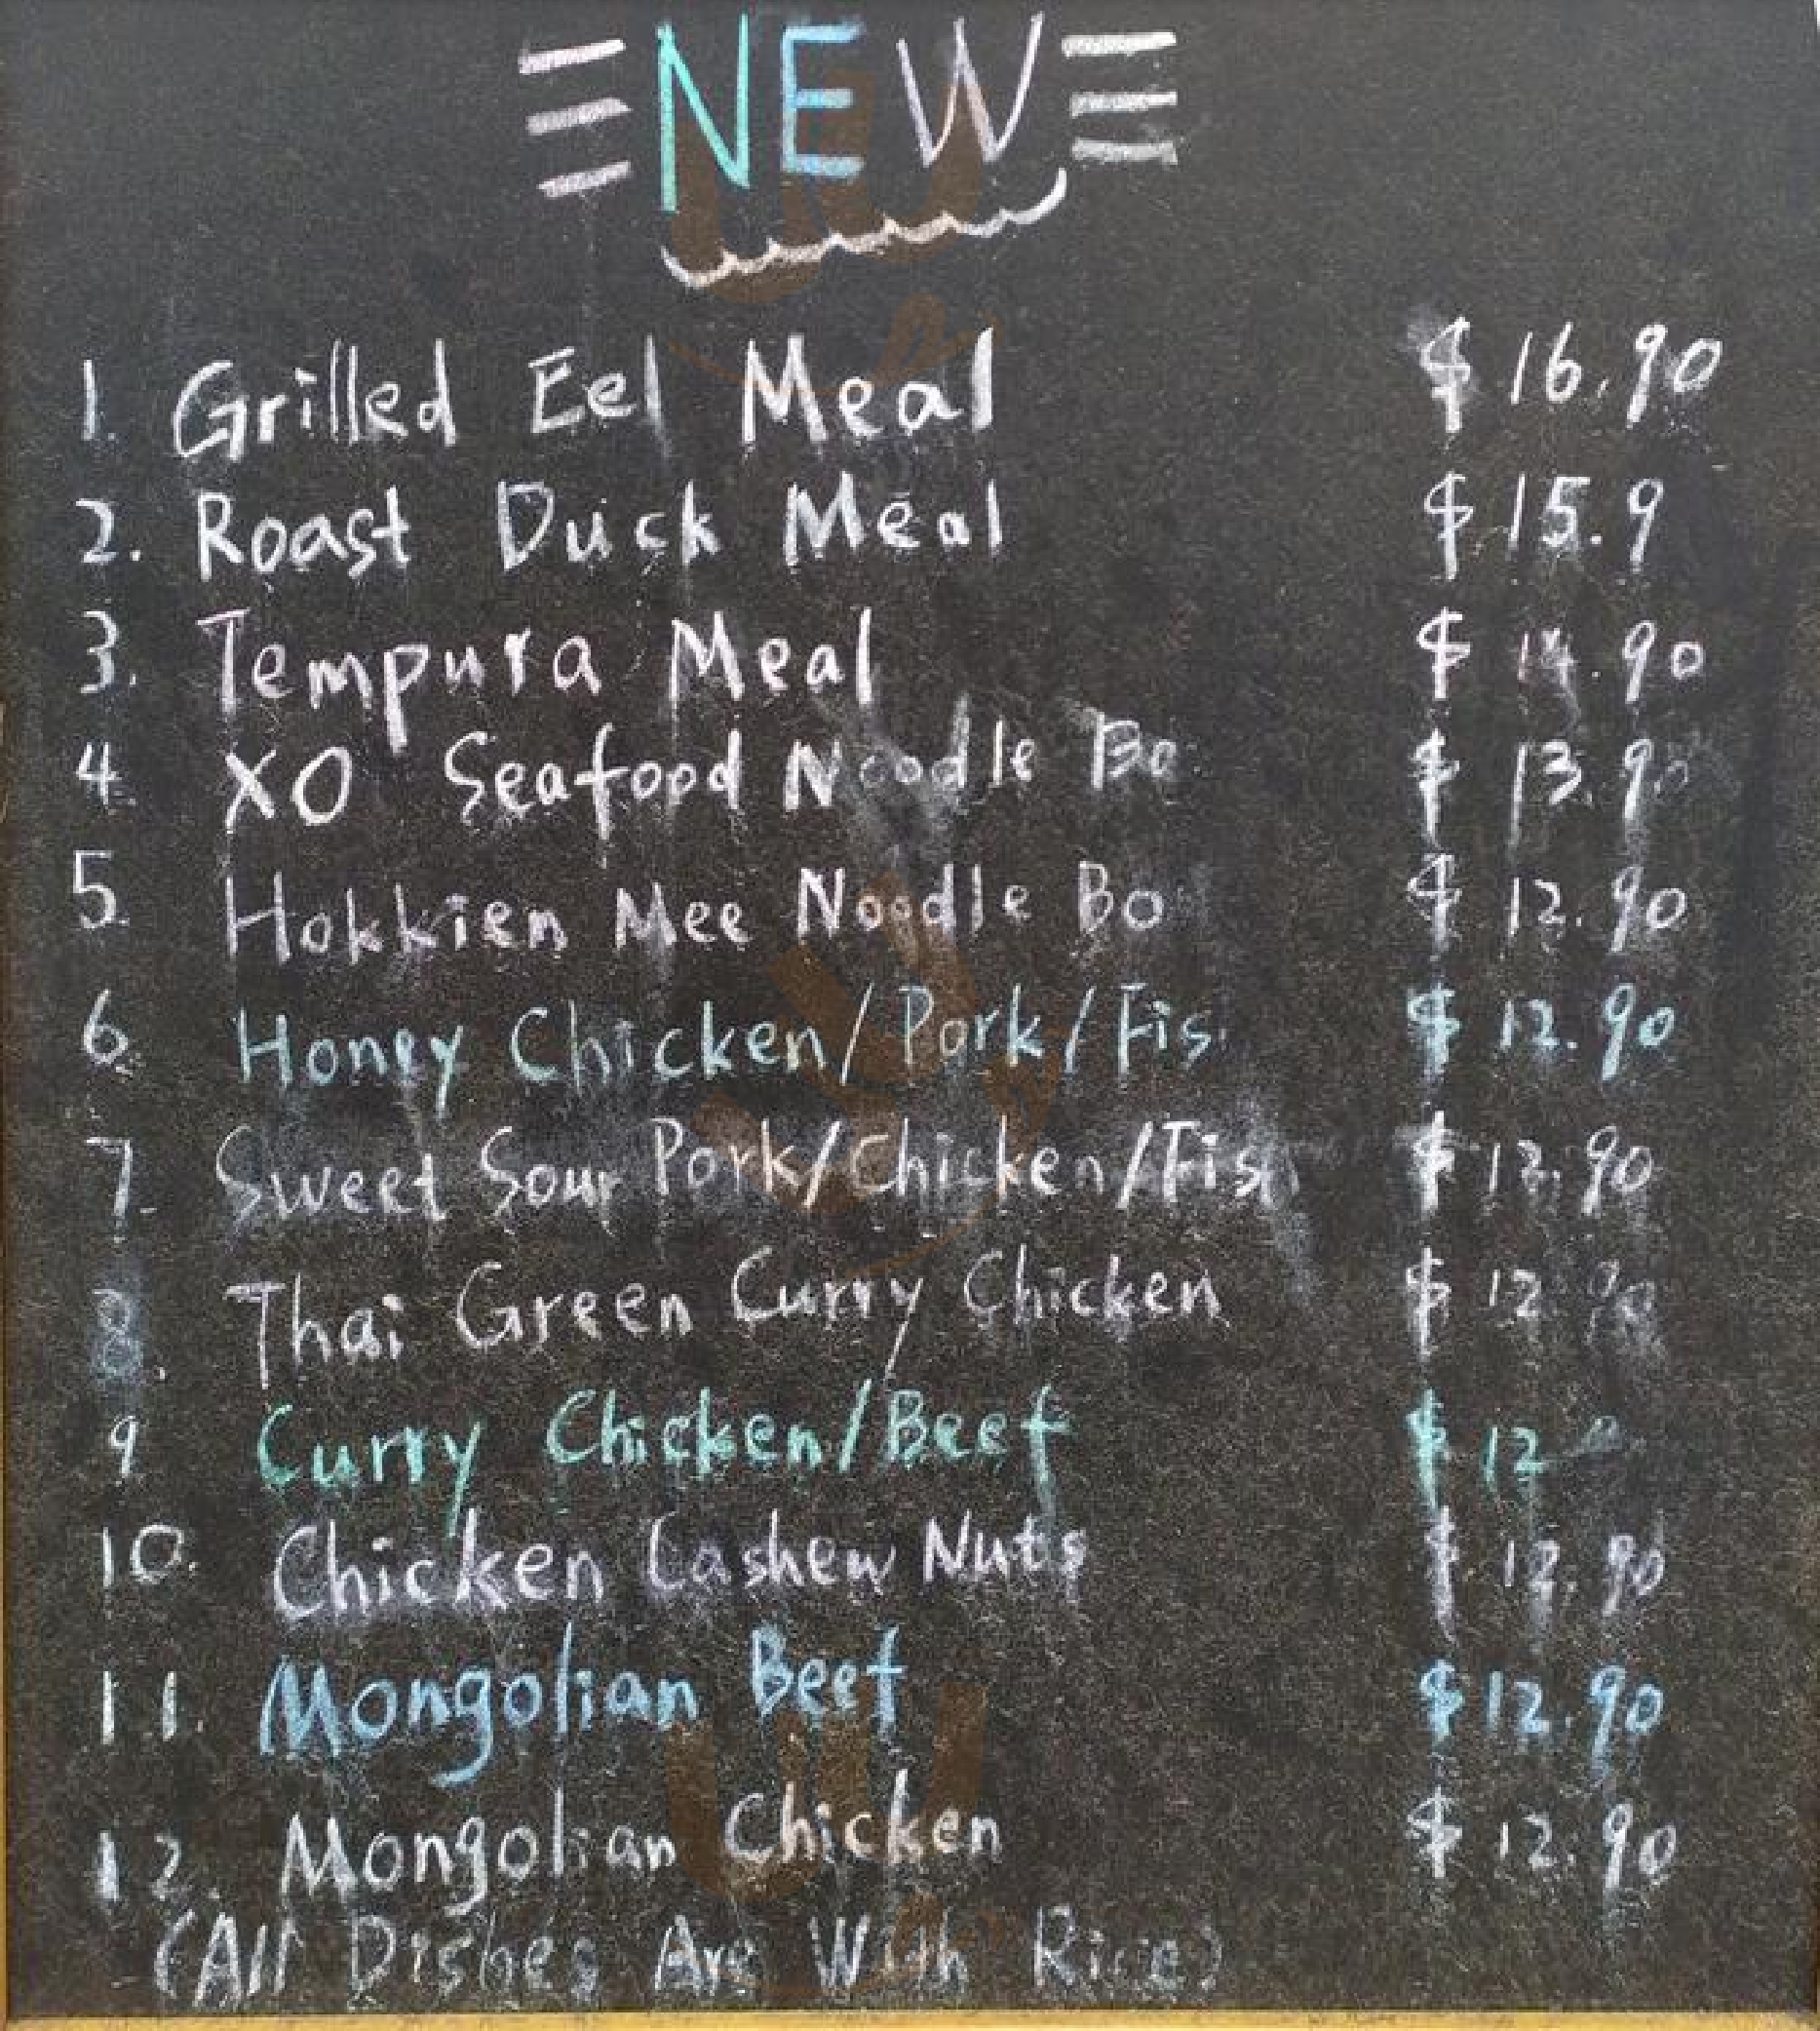 NEW
1. Grilled Eel Meal $ 16.90
2. Roast Duck Meal $ 15.9
3. Tempura Meal $ 14.90
4 XO Seafood Noodle Bo $ 13.90
5. Hokkien Mee Noodle Bo $ 12.90
6. Honey Chicken/Pork/Fis $ 12.90
7. Sweet Sour Pork/Chicken/Fis $ 12.90
8. Thai Green Curry Chicken $ 12.90
9 Curry Chicken/Beef $ 12
10. Chicken Cashew Nuts $ 12.90
11. Mongolian Beef $ 12.90
12. Mongolian Chicken $ 12.90
(All Dishes Are With Rice)